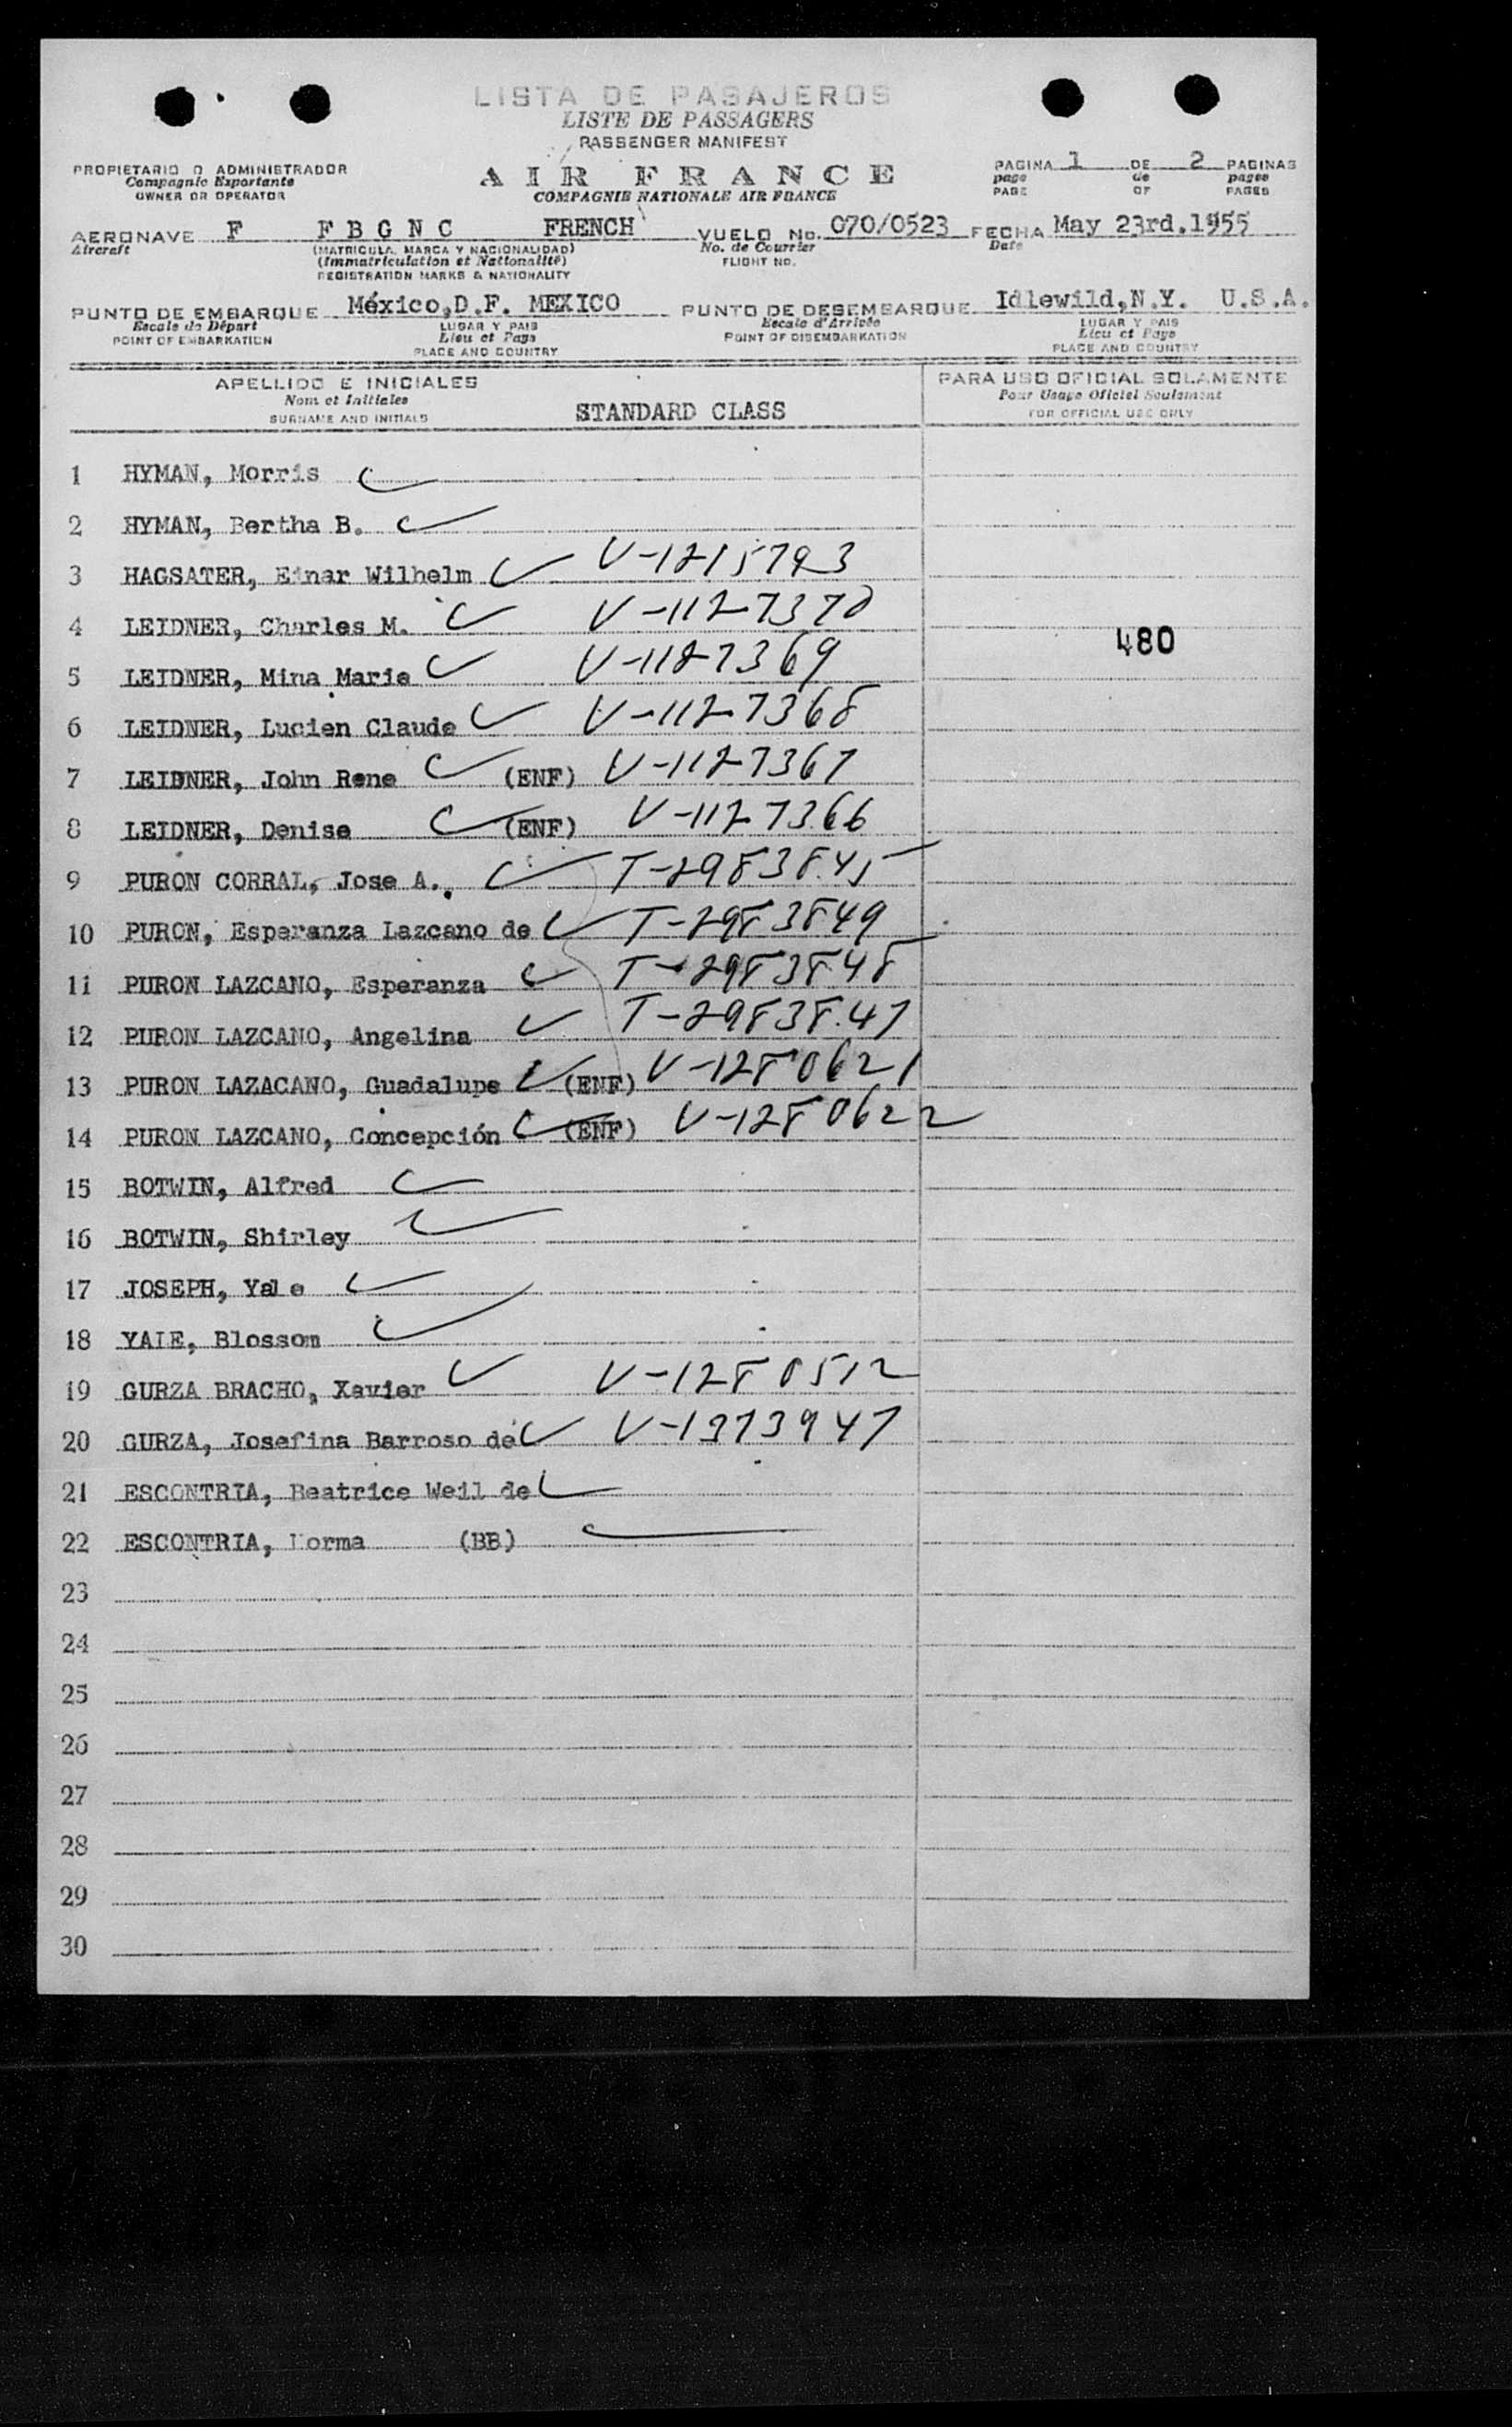 LISTA DE PASAJEROS
LISTE DE PASSAGERS
PASSENGER MANIFEST
PROPIETARIO O ADMINISTRADOR
Compagnie Exportante
OWNER OR OPERATOR
AIR FRANCE
COMPAGNIE NATIONALE AIR FRANCE
PAGINA 1 DE 2 PAGINAS
page de pages
PAGE OF PAGES
AERONAVE F F B G N C FRENCH VUELO No. 070/0523 FECHA May 23rd.1955
Aircraft (MATRICULA, MARCA Y NACIONALIDAD) No. de Courrier Date
(Immatriculation et Nationalité) FLIGHT NO.
REGISTRATION MARKS & NATIONALITY
PUNTO DE EMBARQUE México,D.F. MEXICO PUNTO DE DESEMBARQUE Idlewild,N.Y. U.S.A.
Escale de Départ LUGAR Y PAIS Escale d'Arrivée LUGAR Y PAIS
POINT OF EMBARKATION Lieu et Pays POINT OF DISEMBARKATION Lieu et Pays
PLACE AND COUNTRY PLACE AND COUNTRY
APELLIDO E INICIALES PARA USO OFICIAL SOLAMENTE
Nom et Initiales Pour Usage Oficiel Seulement
SURNAME AND INITIALS STANDARD CLASS FOR OFFICIAL USE ONLY
1 HYMAN, Morris
2 HYMAN, Bertha B.
3 HAGSATER, Einar Wilhelm V-1215793
4 LEIDNER, Charles M. V-1127370
480
5 LEIDNER, Mina Marie V-1127369
6 LEIDNER, Lucien Claude V-1127368
7 LEIDNER, John Rene (ENF) V-1127367
8 LEIDNER, Denise (ENF) V-1127366
9 PURON CORRAL, Jose A. T-2983845
10 PURON, Esperanza Lazcano de T-2983849
11 PURON LAZCANO, Esperanza T-2983848
12 PURON LAZCANO, Angelina T-2983847
13 PURON LAZACANO, Guadalupe (ENF) V-1280621
14 PURON LAZCANO, Concepción (ENF) V-1280622
15 BOTWIN, Alfred
16 BOTWIN, Shirley
17 JOSEPH, Yale
18 YALE, Blossom
19 GURZA BRACHO, Xavier V-1280512
20 GURZA, Josefina Barroso de V-1373947
21 ESCONTRIA, Beatrice Weil de
22 ESCONTRIA, Norma (BB)
23
24
25
26
27
28
29
30